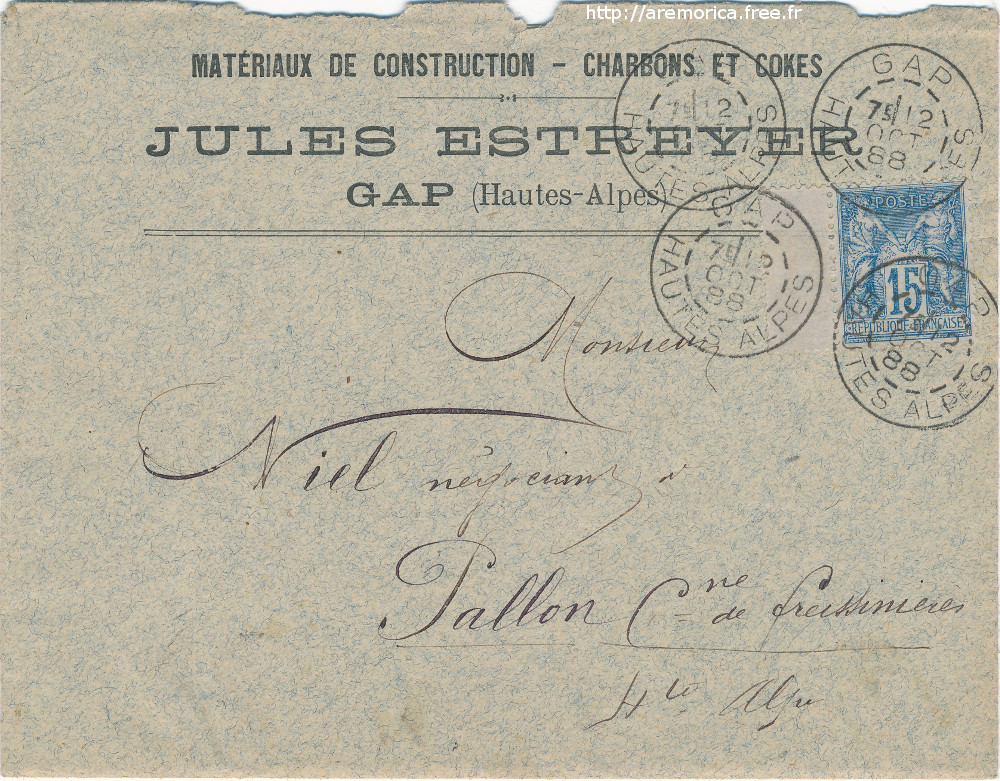 http://aremorica.free.fr
MATÉRIAUX DE CONSTRUCTION - CHARBONS ET COKES
JULES ESTREYER
GAP (Hautes-Alpes)
GAP
7E/12
OCT
88
HAUTES ALPES
GAP
7E/12
OCT
88
HAUTES ALPES
GAP
7E/12
OCT
88
HAUTES ALPES
GAP
12
OCT
88
HAUTES ALPES
POSTE
15
REPUBLIQUE FRANÇAISE
Monsieur
Niel négociant à
Pallon Cne de freissinières
Htes Alpes